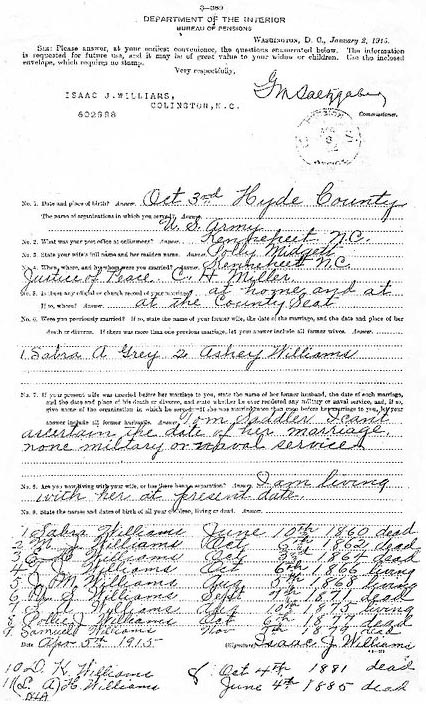 3—389
DEPARTMENT OF THE INTERIOR
BUREAU OF PENSIONS
WASHINGTON, D. C., January 2, 1915.
SIR: Please answer, at your earliest convenience, the questions enumerated below. The information
is requested for future use, and it may be of great value to your widow or children. Use the inclosed
envelope, which requires no stamp.
Very respectfully,
ISAAC J. WILLIAMS,
COLINGTON, N.C.
602888
G M Saltzgaber
Commissioner.
No. 1. Date and place of birth? Answer. Oct 3rd Hyde County
The name of organizations in which you served? Answer.
U.S. Army
No. 2. What was your post office at enlistment? Answer. Kennekeet N.C.
No. 3. State your wife's full name and her maiden name. Answer. Polly Midgett
No. 4. When, where, and by whom were you married? Answer. Kennekeet NC
Justice of Peace C. H. Miller
No. 5. Is there any official or church record of your marriage? at home and at
If so, where? Answer. at the County Seat
No. 6. Were you previously married? If so, state the name of your former wife, the date of the marriage, and the date and place of her
death or divorce. If there was more than one previous marriage, let your answer include all former wives. Answer.
1 Sabra A Grey 2 Ashey Williams
No. 7. If your present wife was married before her marriage to you, state the name of her former husband, the date of such marriage,
and the date and place of his death or divorce, and state whether he ever rendered any military or naval service, and, if so,
give name of the organization in which he served. If she was married more than once before her marriage to you, let your
answer include all former husbands. Answer. Tom Saddler I cant
ascertain the date of her marriage.
none military or naval service
No. 8. Are you now living with your wife, or has there been a separation? Answer. I am living
with her at present date.
No. 9. State the names and dates of birth of all your children, living or dead. Answer.
1 Sabra Williams June 10th 1860 dead
2 Williams Oct 1862 dead
3 Williams Oct 3rd 1864 dead
4 Williams Oct 6th 1866 living
5 J. M Williams Aug 5th 1868 living
6 Williams Sept 4th 1871 dead
7 Williams Apr 10th 1875 living
8 Pollie J Williams Oct 6th 1877 dead
9 Samuel Williams Nov 7th 1879 dead
Date Apr 5th 1915 (Signature) Isaac J Williams
10 D. K. Williams & Oct 4th 1881 dead
11 (L. A) H. Williams June 4th 1885 dead